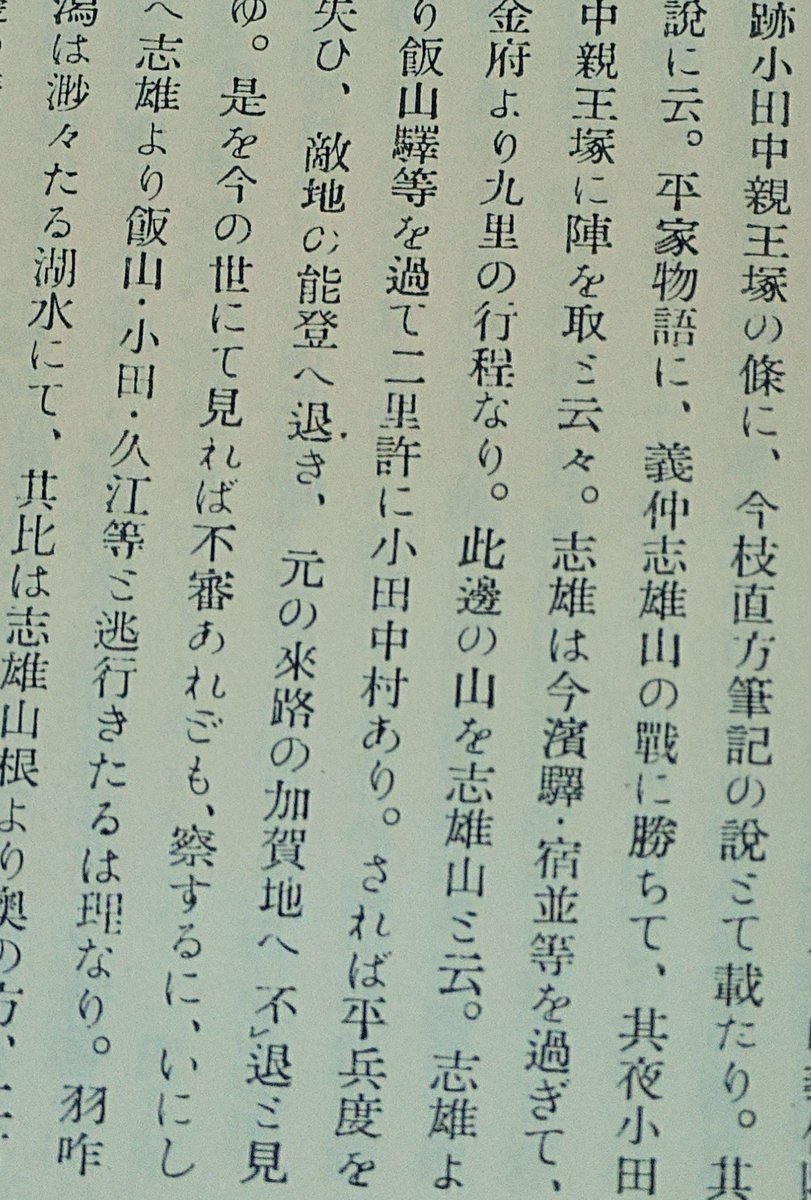 跡小田中親王塚の條に、今枝直方筆記の説とて載たり。其
説に云。平家物語に、義仲志雄山の戰に勝ちて、其夜小田
中親王塚に陣を取と云々。志雄は今濱驛・宿並等を過ぎて、
金府より九里の行程なり。此邊の山を志雄山と云。志雄よ
り飯山驛等を過て二里許に小田中村あり。されば平兵度を
失ひ、敵地の能登へ退き、元の來路の加賀地へ不㆑退と見
ゆ。是を今の世にて見れば不審あれども、察するに、いにし
へ志雄より飯山・小田・久江等と逃行きたるは理なり。羽咋
潟は渺々たる湖水にて、其比は志雄山根より奥の方、